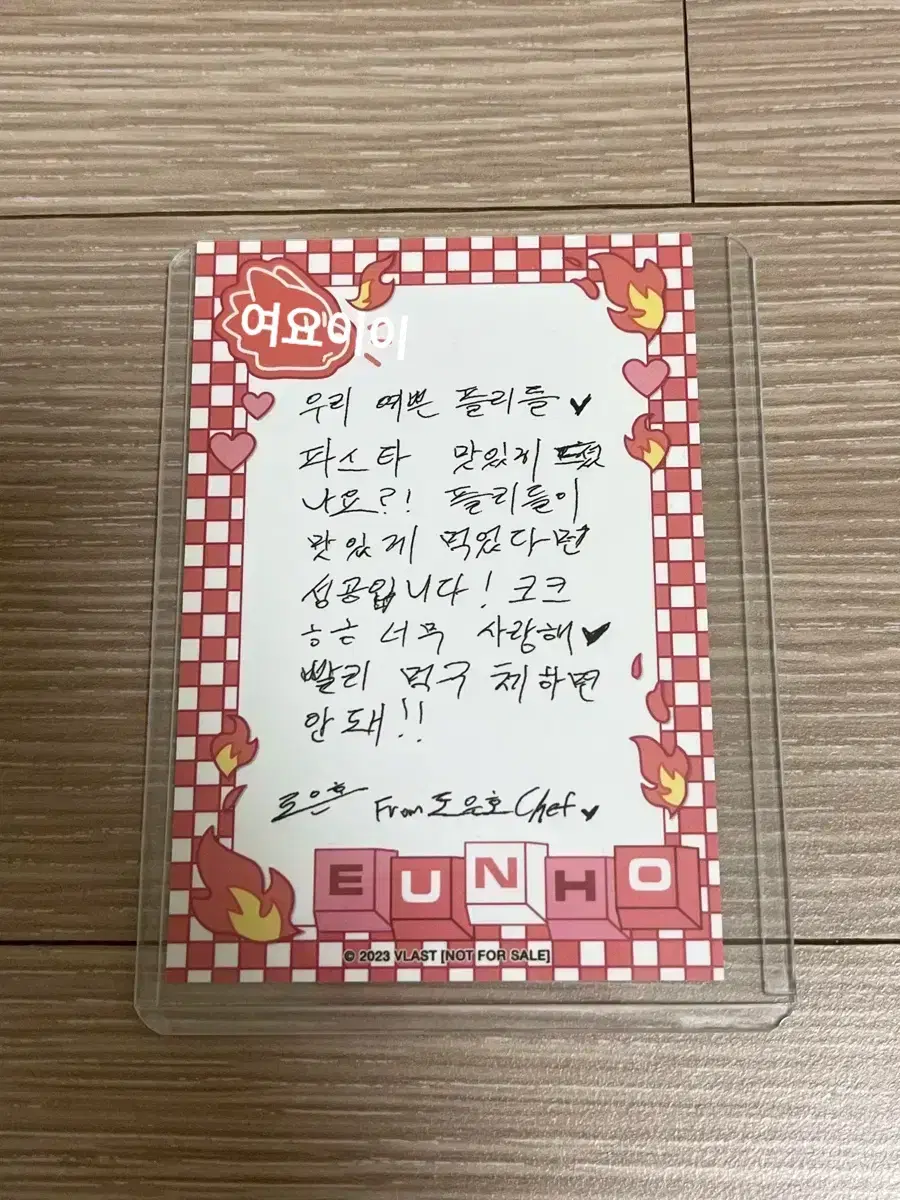 여요이이
우리 예쁜 플리들
파스타 맛있게 드셨
나요?! 플리들이
맛있게 먹었다면
성공입니다! 코크
ㅎㅎ 너무 사랑해
빨리 먹구 체하면
안 돼!!
From 도은호 Chef
EUNHO
© 2023 VLAST [NOT FOR SALE]